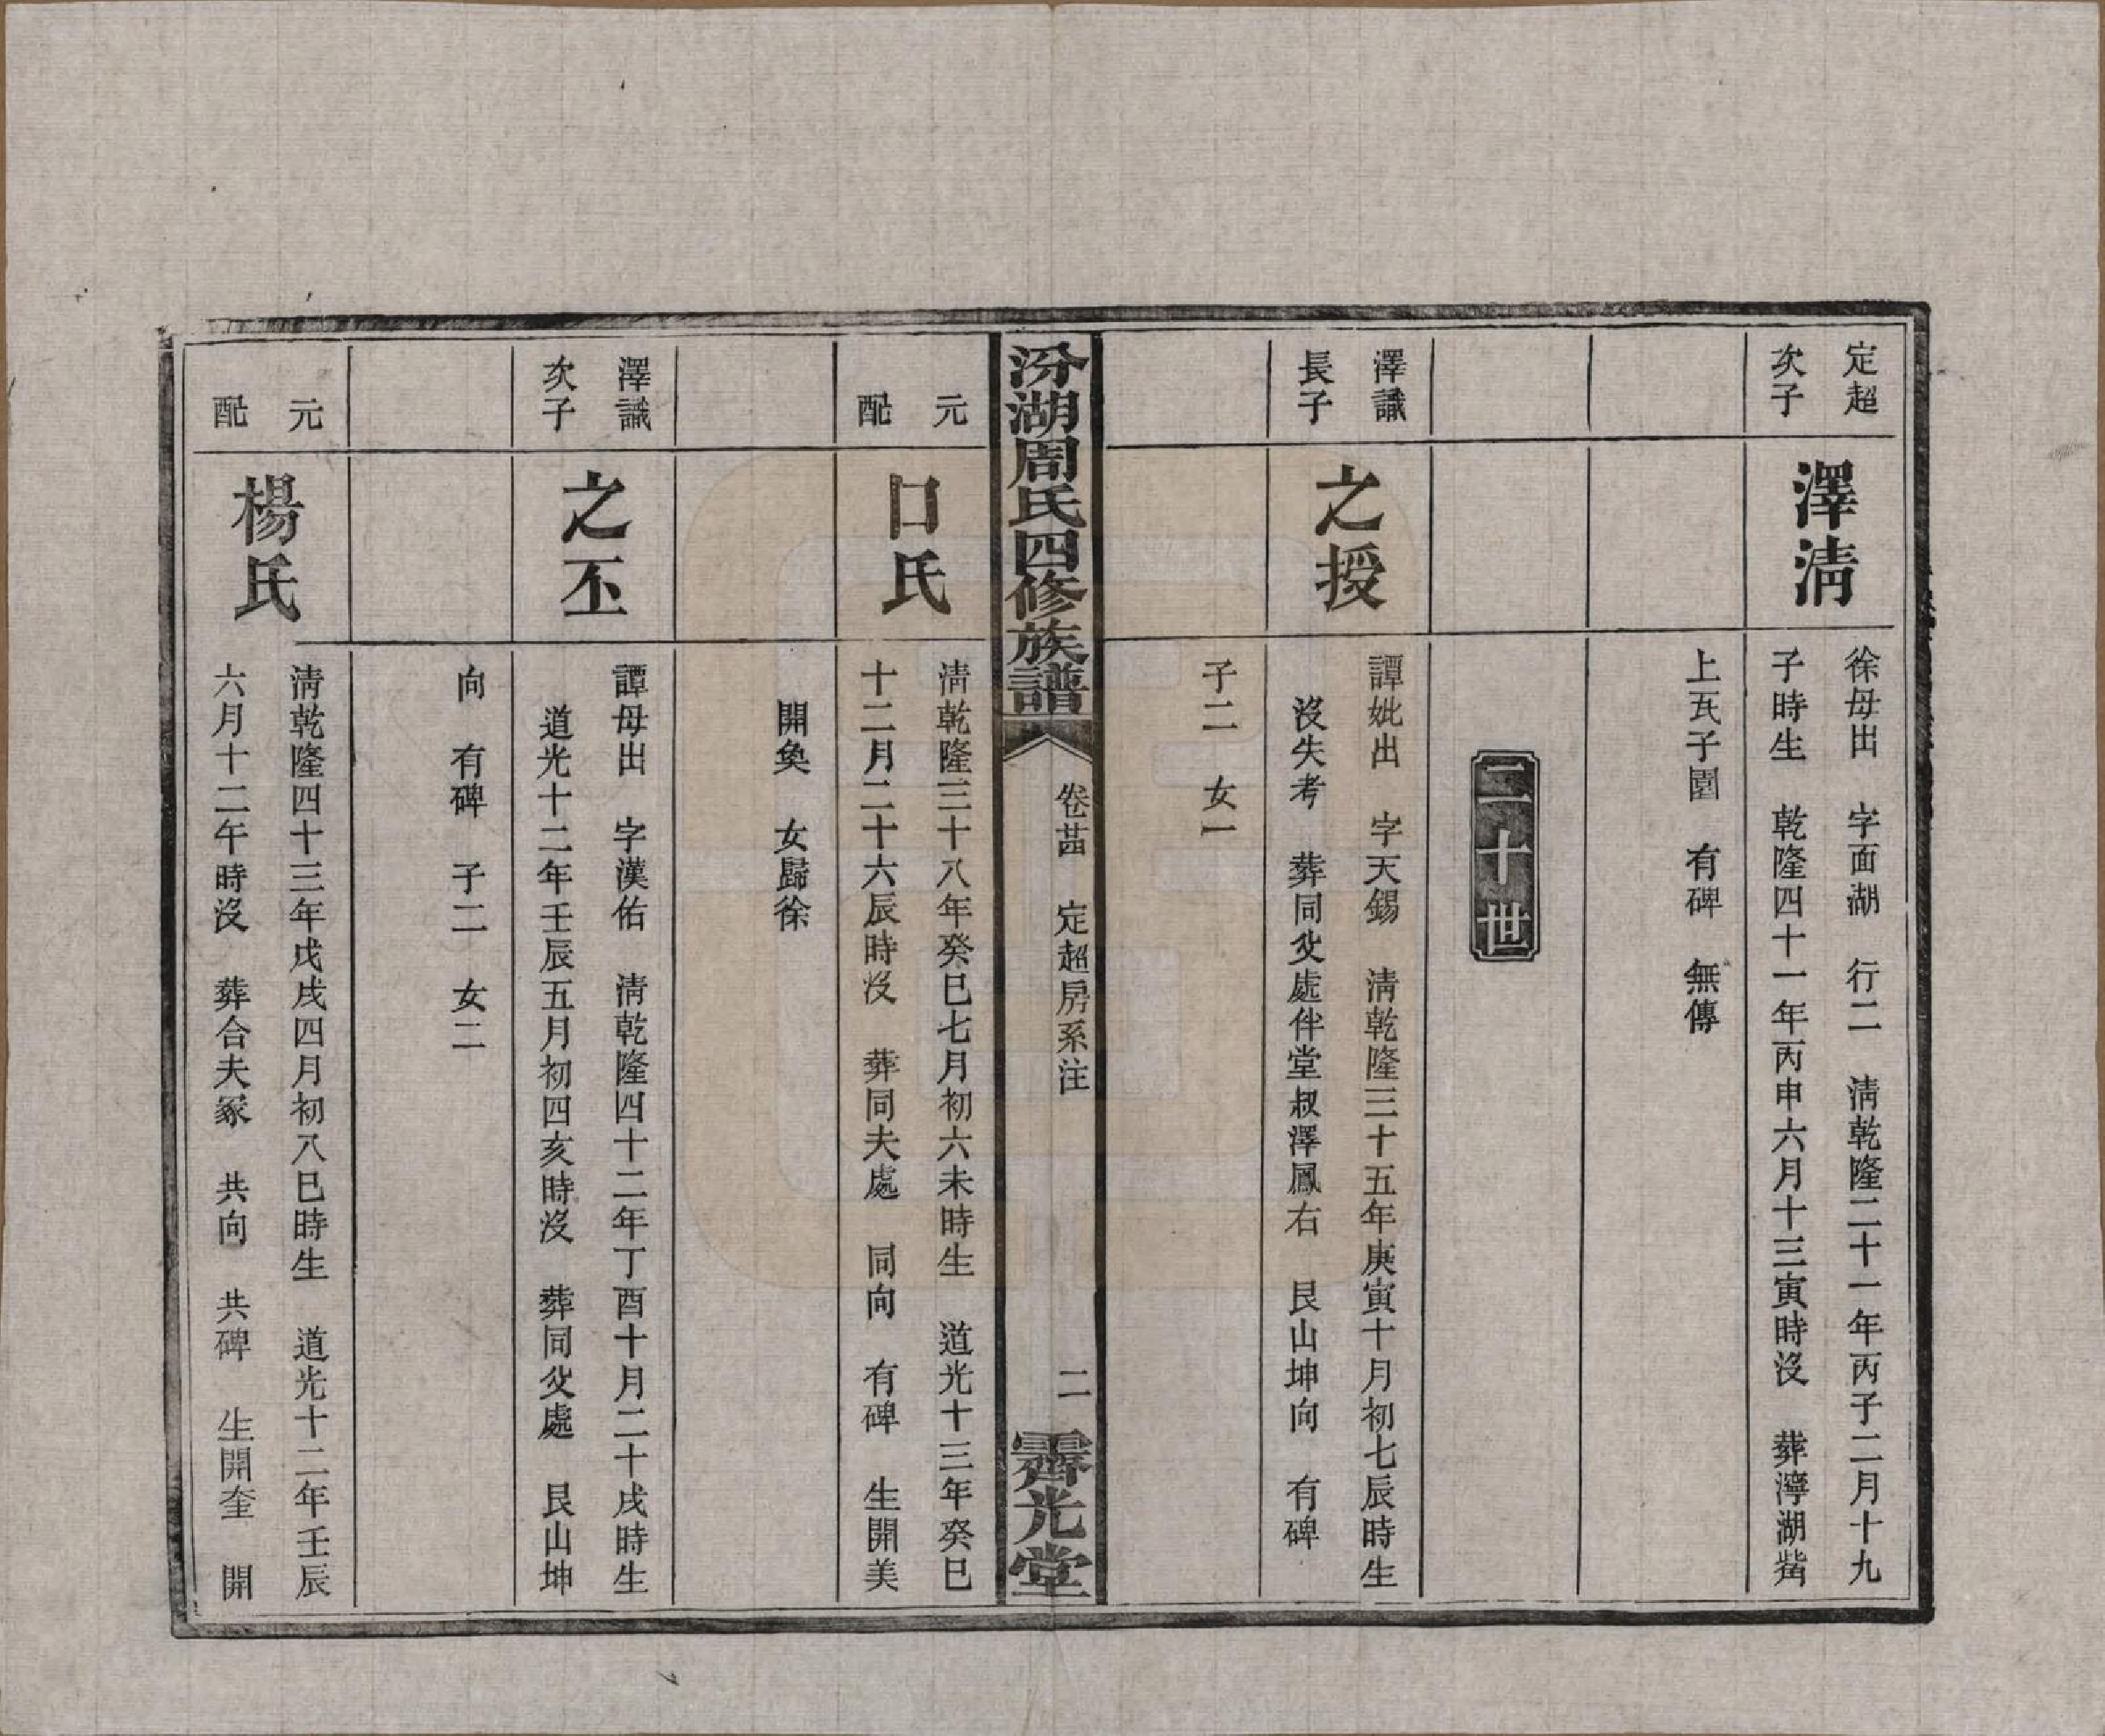 定超
次子
澤淸
徐母出　字面湖　行二　淸乾隆二十一年丙子二月十九
子時生　乾隆四十一年丙申六月十三寅時沒　葬濘湖觜
上瓦子園　有碑　無傳
二十世
澤識
長子
之授
譚妣出　字天錫　淸乾隆三十五年庚寅十月初七辰時生
沒失考　葬同父處伴堂叔澤鳳右　艮山坤向　有碑
子二　女一
汾湖周氏四修族譜
卷茁　定超房系注　二
霽光堂
元
配
口氏
淸乾隆三十八年癸巳七月初六未時生　道光十三年癸巳
十二月二十六辰時沒　葬同夫處　同向　有碑　生開美
開奐　女歸徐
澤識
次子
之丕
譚母出　字漢佑　淸乾隆四十二年丁酉十月二十戌時生
道光十二年壬辰五月初四亥時沒　葬同父處　艮山坤
向　有碑　子二　女二
元
配
楊氏
淸乾隆四十三年戊戌四月初八巳時生　道光十二年壬辰
六月十二午時沒　葬合夫冢　共向　共碑　生開奎　開